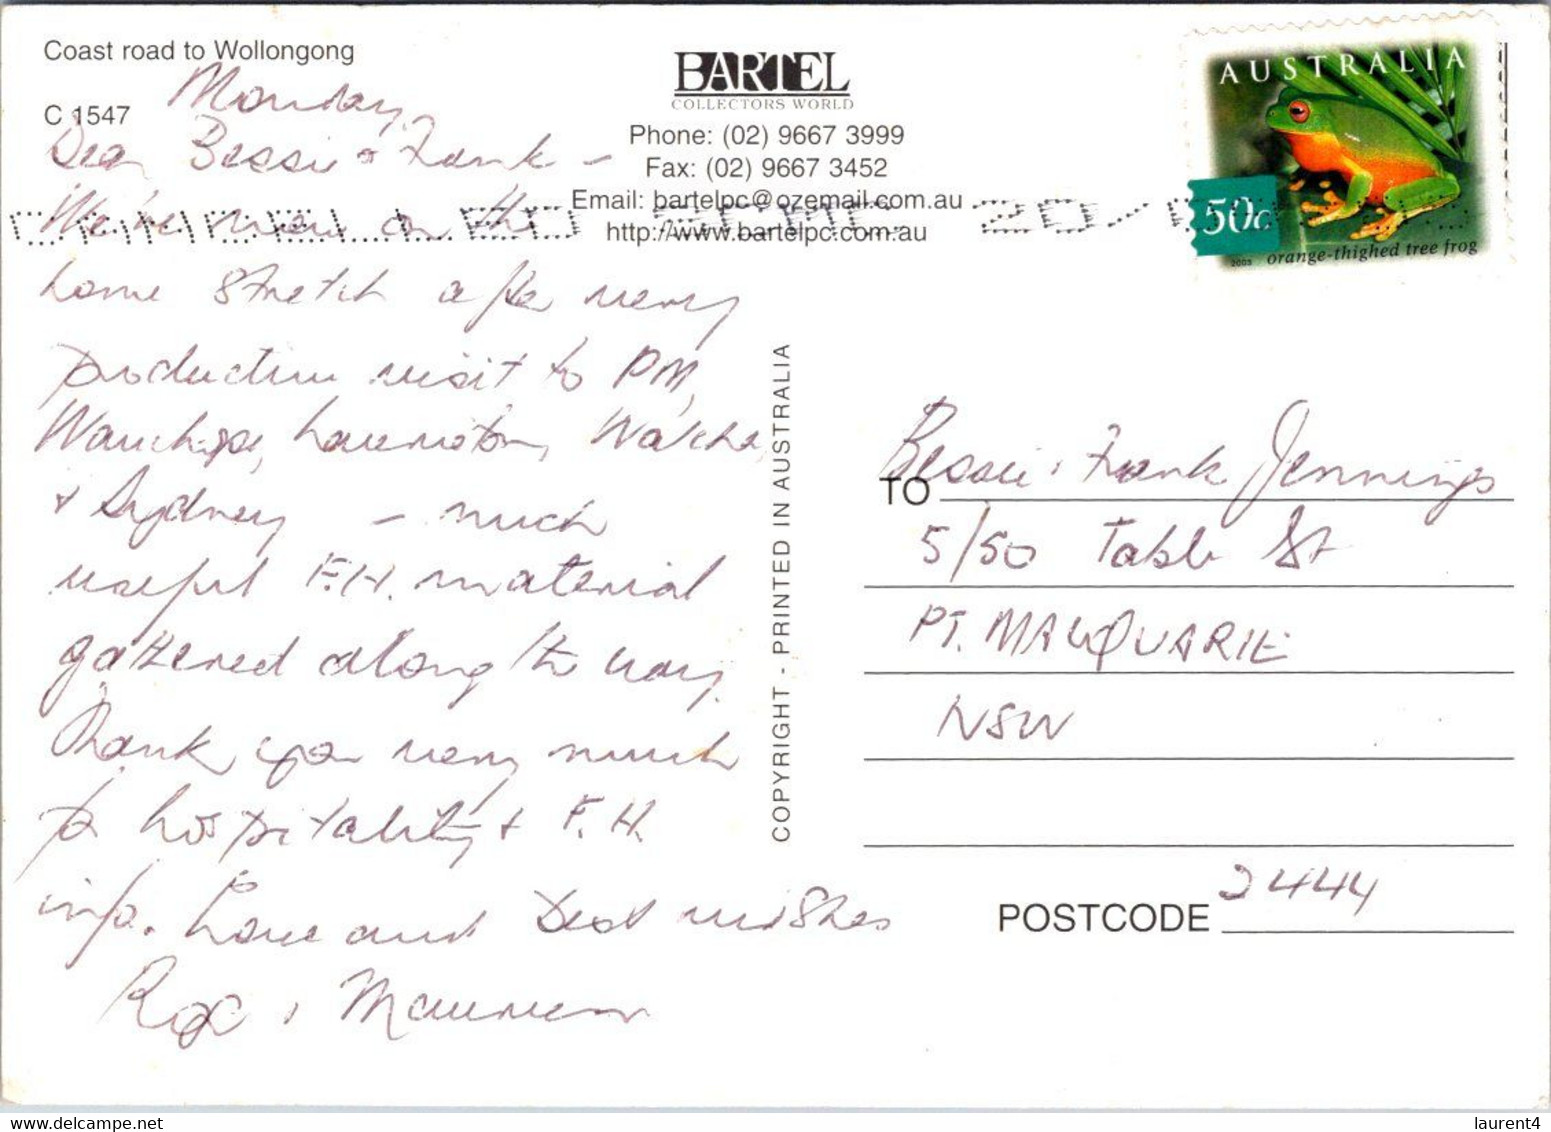 Coast road to Wollongong
C 1547
Monday
Dear Bessie & Frank –
We're now on the
home stretch after very
productive visit to PM,
Wauchope, Laurieton, Walcha,
& Sydney – much
useful F.H. material
gathered along the way.
Thank you very much
for hospitality & F.H.
info. Love and best wishes
Maureen
BARTEL
COLLECTORS WORLD
Phone: (02) 9667 3999
Fax: (02) 9667 3452
Email: bartelpc@ozemail.com.au
http://www.bartelpc.com.au
COPYRIGHT - PRINTED IN AUSTRALIA
AUSTRALIA
50c
2003 orange-thighed tree frog
TO Bessie & Frank Jennings
5/50 Table St
PT. MACQUARIE
NSW
POSTCODE 2444
laurent4